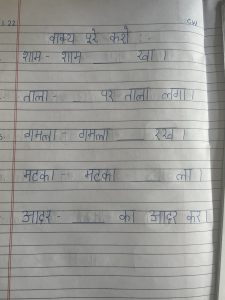 1.22 CW
वाक्य पूरे करो :-
शाम - शाम ____ रखा।
ताला - ____ पर ताला लगा।
गमला - गमला ____ रख।
मटका - मटका ____ ला।
आदर - ____ का आदर कर।